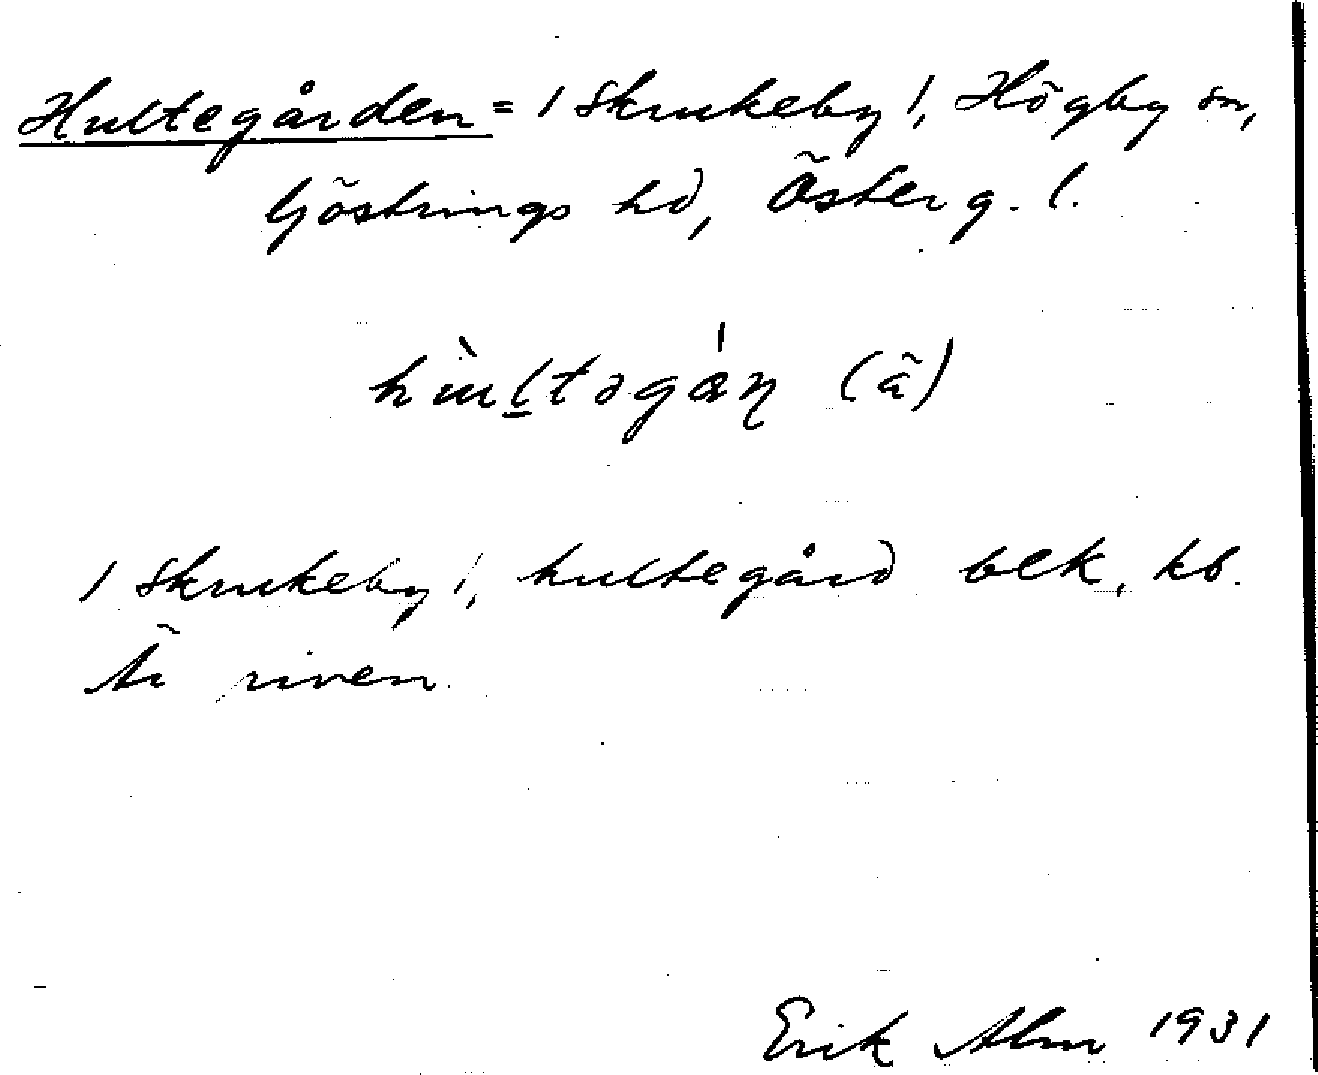 Hultegården = 1 Skrukeby 1, Högby sn,
Göstrings hd, Österg. l.
(ã)
1 Skrukeby 1, hultegård bek, kb.
Är riven.
Erik Alm 1931